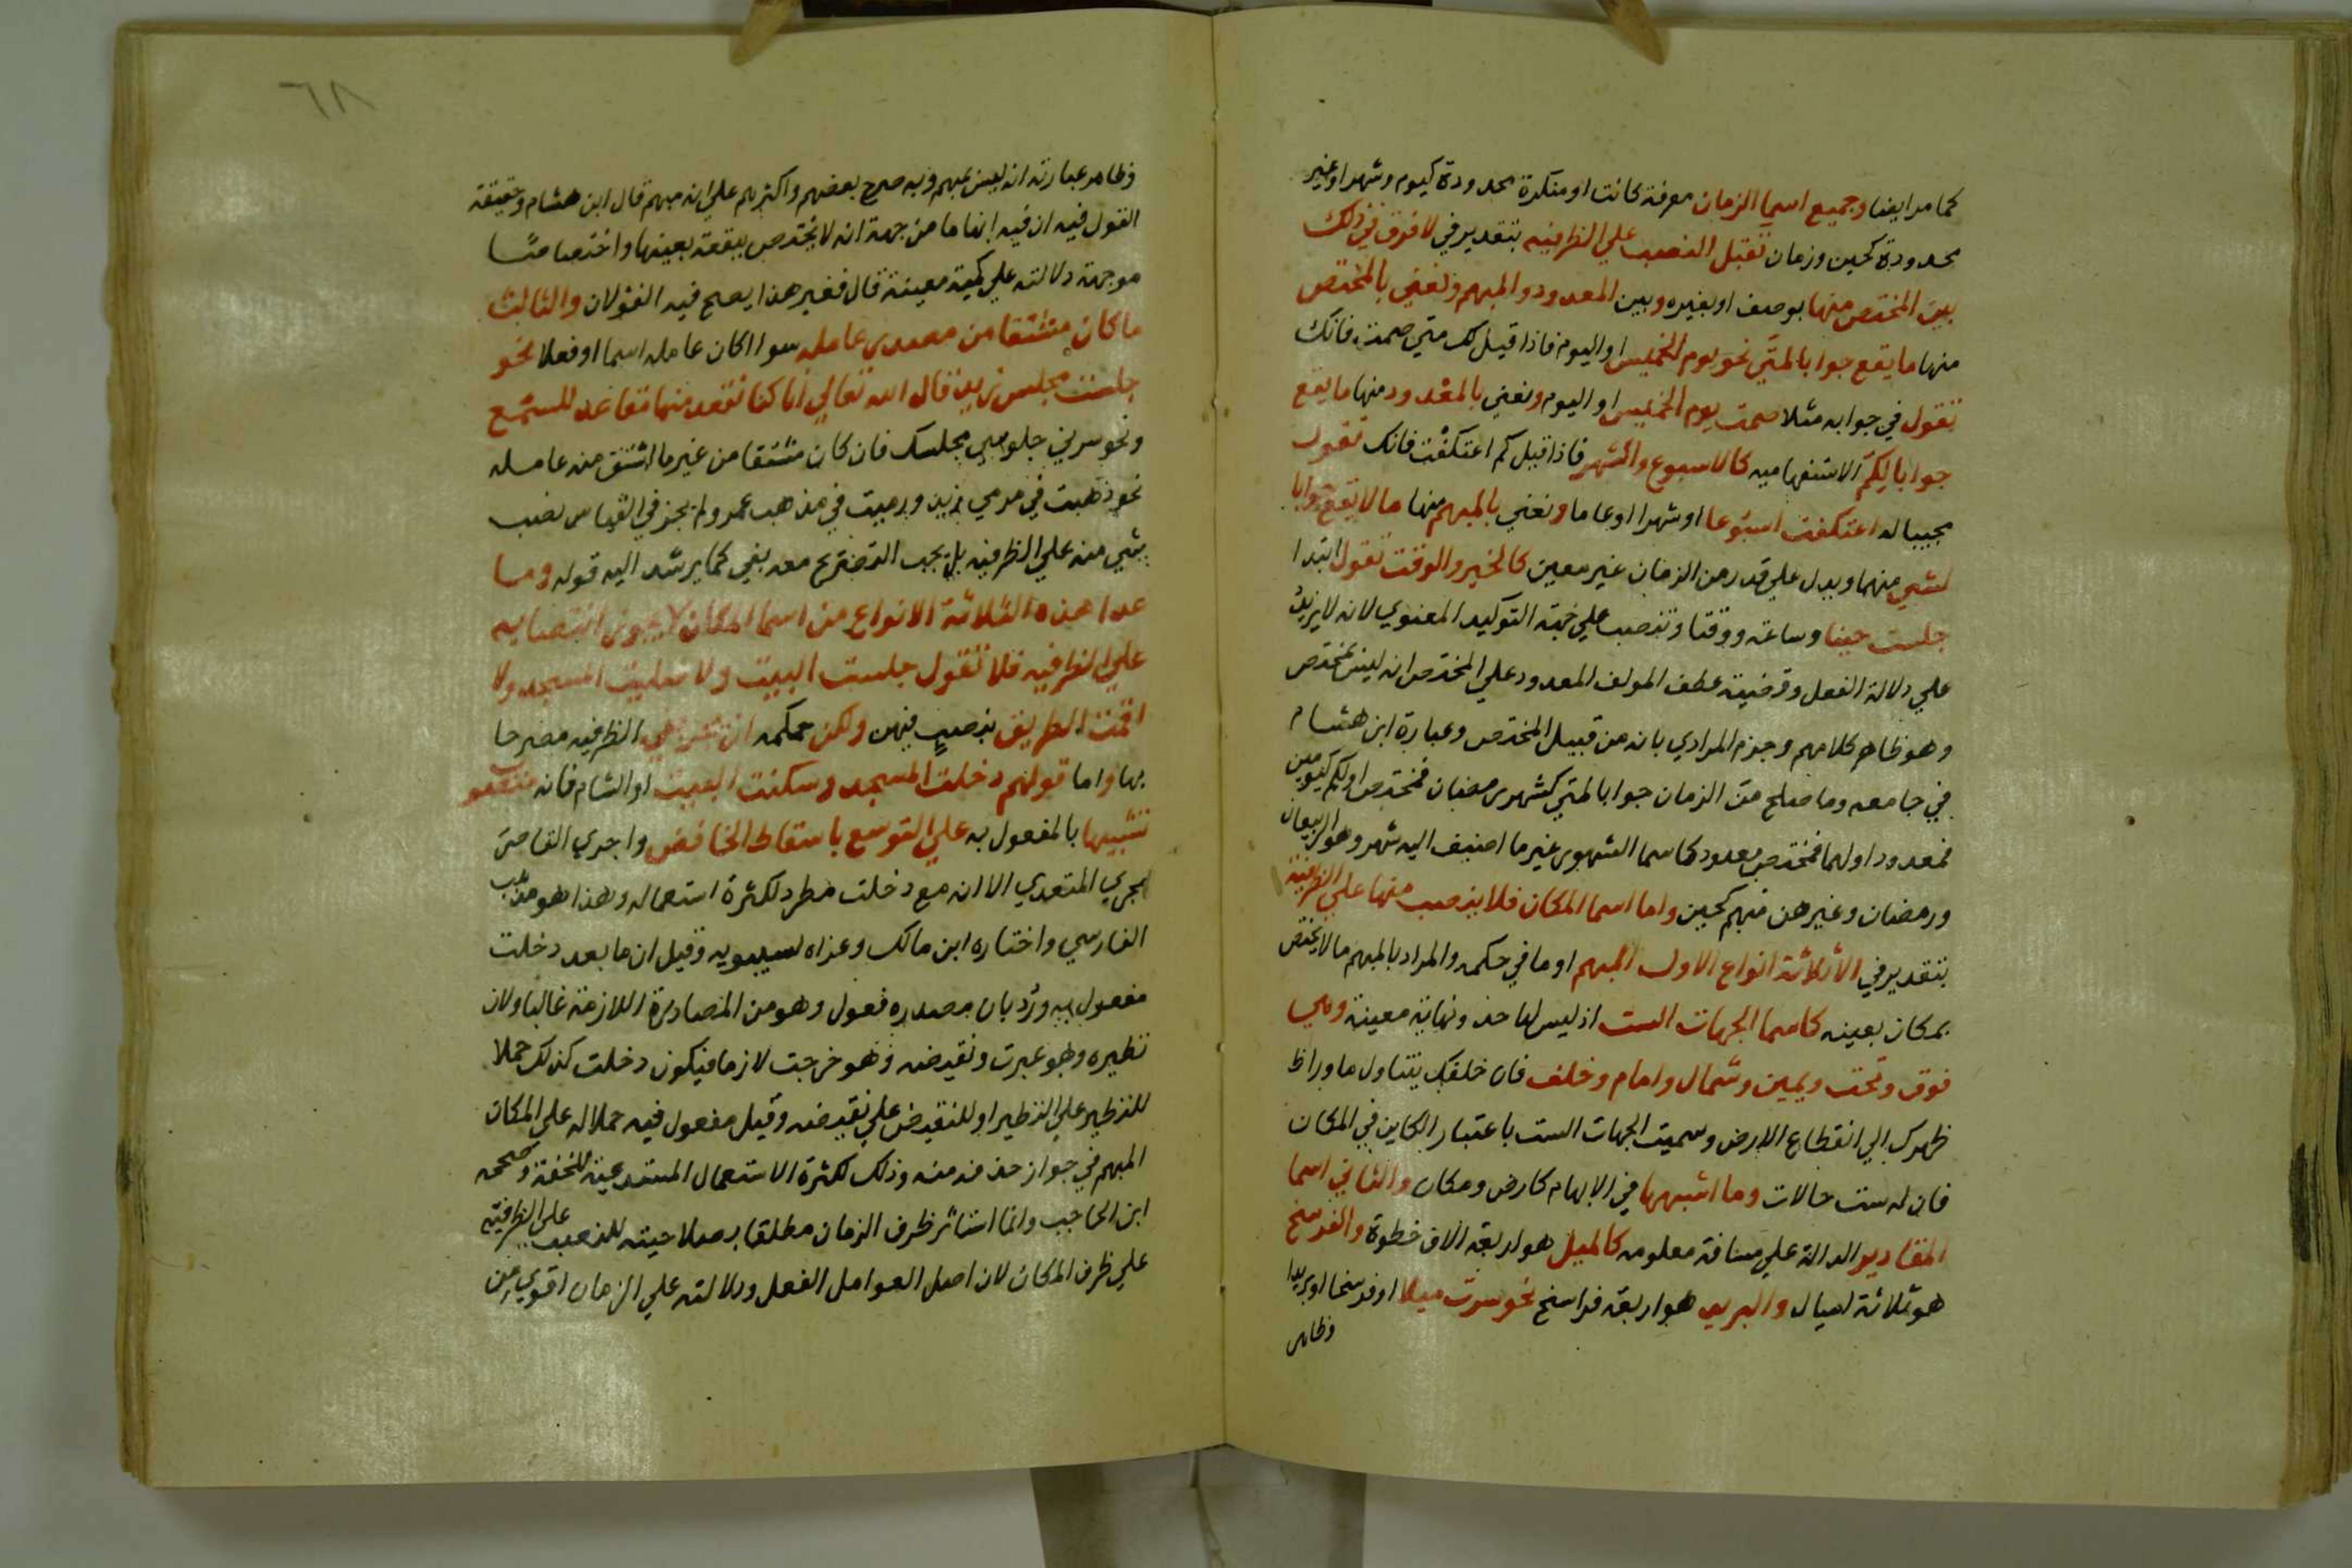 كما مر ايضا وجميع اسما الزمان معرفة كانت او منكرة محدودة كيوم وشهر او غير
محدودة كحين وزمان تقبل النصب علي الظرفيه بتقدير في لا فرق في ذلك
بين المختص منها بوصف او بغيره وبين المعدود والمبهم ونعني بالمختص
منها ما يقع جوابا لمتي نحو يوم الخميس او اليوم فاذا قيل لك متي صمت فانك
تقول في جوابه مثلا صمت يوم الخميس او اليوم ونعني بالمعدود منها ما يقع
جوابا لكم الاستفهاميه كالاسبوع والشهر فاذا قيل كم اعتكفت فانك تقول
مجيبا له اعتكفت اسبوعا او شهرا او عاما ونعني بالمبهم منها ما لا يقع جوابا
لشي منهما ويدل علي قدر من الزمان غير معين كالحين والوقت تقول ابتدا
جلست حينا وساعة ووقتا وتنصب علي جهة التوكيد المعنوي لانه لا يزيد
علي دلالة الفعل وقضية عطف المولف المعدود علي المختص انه ليس بمختص
وهو ظاهر كلامهم وجزم المرادي بانه من قبيل المختص وعبارة ابن هشام
في جامعه وما صلح من الزمان جوابا لمتي كشهر رمضان فمختص او لكم كيومين
فمعدود او لهما فمختص معدود كاسما الشهور غير ما اضيف اليه شهر وهو الربيعان
ورمضان وغيرهن مبهم كحين واما اسما المكان فلا ينصب منها علي الظرفية
بتقدير في الا ثلاثة انواع الاول المبهم او ما في حكمه والمراد بالمبهم ما لا يختص
بمكان بعينه كاسما الجهات الست اذ ليس لها حد ونهاية معينة وهي
فوق وتحت ويمين وشمال وامام وخلف فان خلفك يتناول ما ورا
ظهرك الي انقطاع الارض وسميت الجهات الست باعتبار الكاين في المكان
فان له ست حالات وما اشبهها في الابهام كارض ومكان والثاني اسما
المقادير الدالة علي مسافة معلومه كالميل هو اربعة الاف خطوة والفرسخ
هو ثلاثة اميال والبريد هو اربعة فراسخ نحو سرت ميلا او فرسخا او بريدا
وظاهر
٦٨
وظاهر عبارته انه ليس بمبهم وبه صرح بعضهم واكثرهم علي انه مبهم قال ابن هشام وحقيقة
القول فيه ان فيه ابهاما من جهة انه لا يختص ببقعة بعينها واختصاصا
من جهة دلالته علي كمية معينة قال فغير هذا يصح فيه القولان والثالث
ما كان مشتقا من مصدر عامله سوا اكان عامله اسما او فعلا نحو
جلست مجلس زيد قال الله تعالي انا كنا نقعد منها مقاعد للسمع
ونحو سرني جلوسي مجلسك فان كان مشتقا من غير ما اشتق منه عامله
نحو ذهبت في مرمي زيد ورميت في مذهب عمرو لم يجز في القياس نصب
شي منه علي الظرفيه بل يجب التصريح معه بفي كما يرشد اليه قوله وما
عدا هذه الثلاثة الانواع من اسما المكان لا يجوز انتصابه
علي الظرفيه فلا تقول جلست البيت ولا صليت المسجد ولا
اقمت الطريق بنصب فيهن ولكن حكمه ان تجر بفي الظرفيه مصرحا
بها واما قولهم دخلت المسجد وسكنت البيت او الشام فانه منصوب
تشبيها بالمفعول به علي التوسع باسقاط الخافض واجري القاصر
مجري المتعدي الا ان مع دخلت مطرد لكثرة استعماله وهذا هو مذهب
الفارسي واختاره ابن مالك وعزاه لسيبويه وقيل ان ما بعد دخلت
مفعول به ورد بان مصدره فعول وهو من المصادر اللازمة غالبا ولان
نظيره وهو عبرت ونقيضه وهو خرجت لازما فيكون دخلت كذلك حملا
للنظير علي النظير او للنقيض علي نقيضه وقيل مفعول فيه حملا له علي المكان
المبهم في جواز حذف في منه وذلك لكثرة الاستعمال المستدعية للخفة وصححه
ابن الحاجب وانما استاثر ظرف الزمان مطلقا بصلاحيته للنصب علي الظرفيه
علي ظرف المكان لان اصل العوامل الفعل ودلالته علي الزمان اقوي من